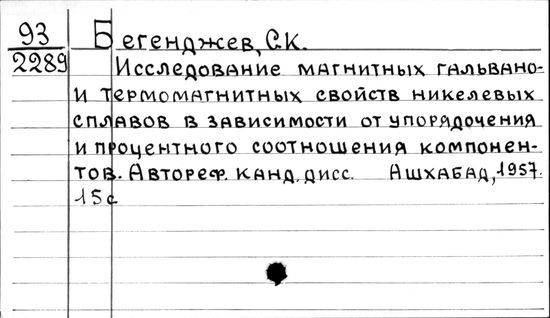 93
2289
Бегенджев, С.К.
Исследование магнитных гальвано-
и термомагнитных свойств никелевых
сплавов в зависимости от упорядочения
и процентного соотношения компонен-
тов. Автореф. канд. дисс. Ашхабад, 1957.
15с